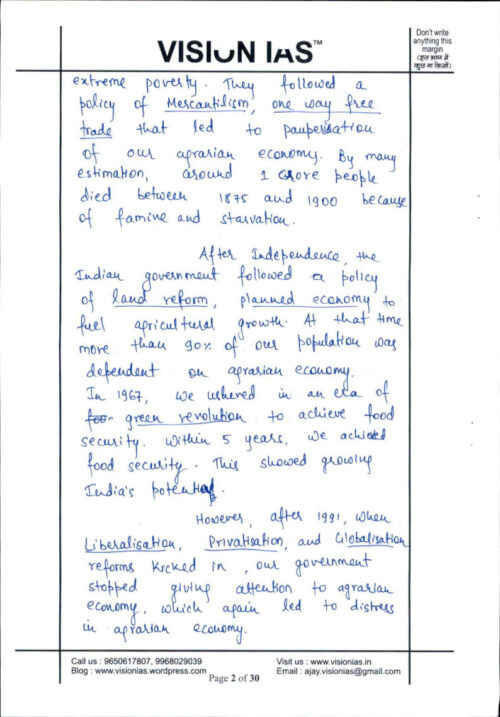 Don't write
anything this
margin
(इस भाग में
कुछ ना लिखें)
VISION IAS™
extreme poverty. They followed a
policy of Mercantilism, one way free
trade that led to pauperisation
of our agrarian economy. By many
estimation, around 1 crore people
died between 1875 and 1900 because
of famine and starvation.
After Independence, the
Indian government followed a policy
of land reform, planned economy to
fuel agricultural growth. At that time
more than 90% of our population was
dependent on agrarian economy.
In 1967, we ushered in an era of
for green revolution to achieve food
security. Within 5 years, we achieved
food security. This showed growing
India's potential.
However, after 1991, when
Liberalisation, Privatisation, and Globalisation
reforms kicked in, our government
stopped giving attention to agrarian
economy, which again led to distress
in agrarian economy.
Call us : 9650617807, 9968029039
Visit us : www.visionias.in
Blog : www.visionias.wordpress.com
Page 2 of 30
Email : ajay.visionias@gmail.com